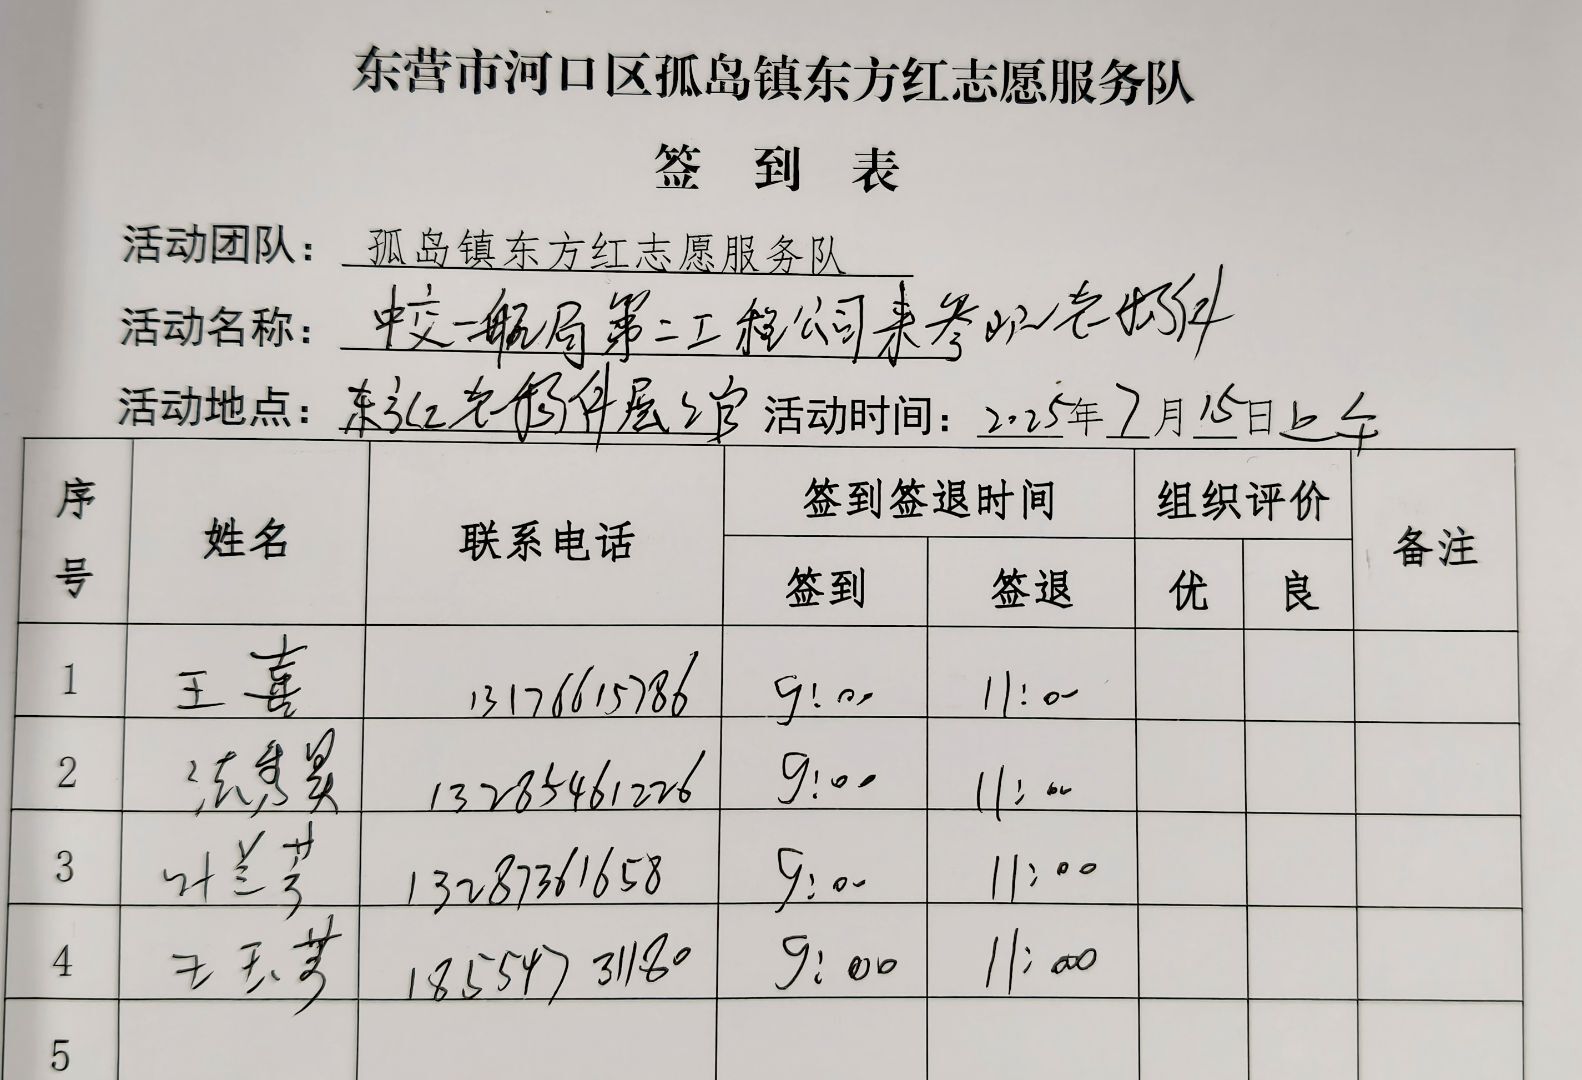 东营市河口区孤岛镇东方红志愿服务队
签 到 表
活动团队：孤岛镇东方红志愿服务队
活动名称：中交一航局第二工程公司来参观老物件
活动地点：东方红老物件展馆 活动时间：2025年7月15日上午
序号 姓名 联系电话 签到签退时间 组织评价 备注
签到 签退 优 良
1 王喜 13176615786 9:00 11:00
2 13285461226 9:00 11:00
3 叶兰芳 13287361658 9:00 11:00
4 王玉芳 18554731180 9:00 11:00
5